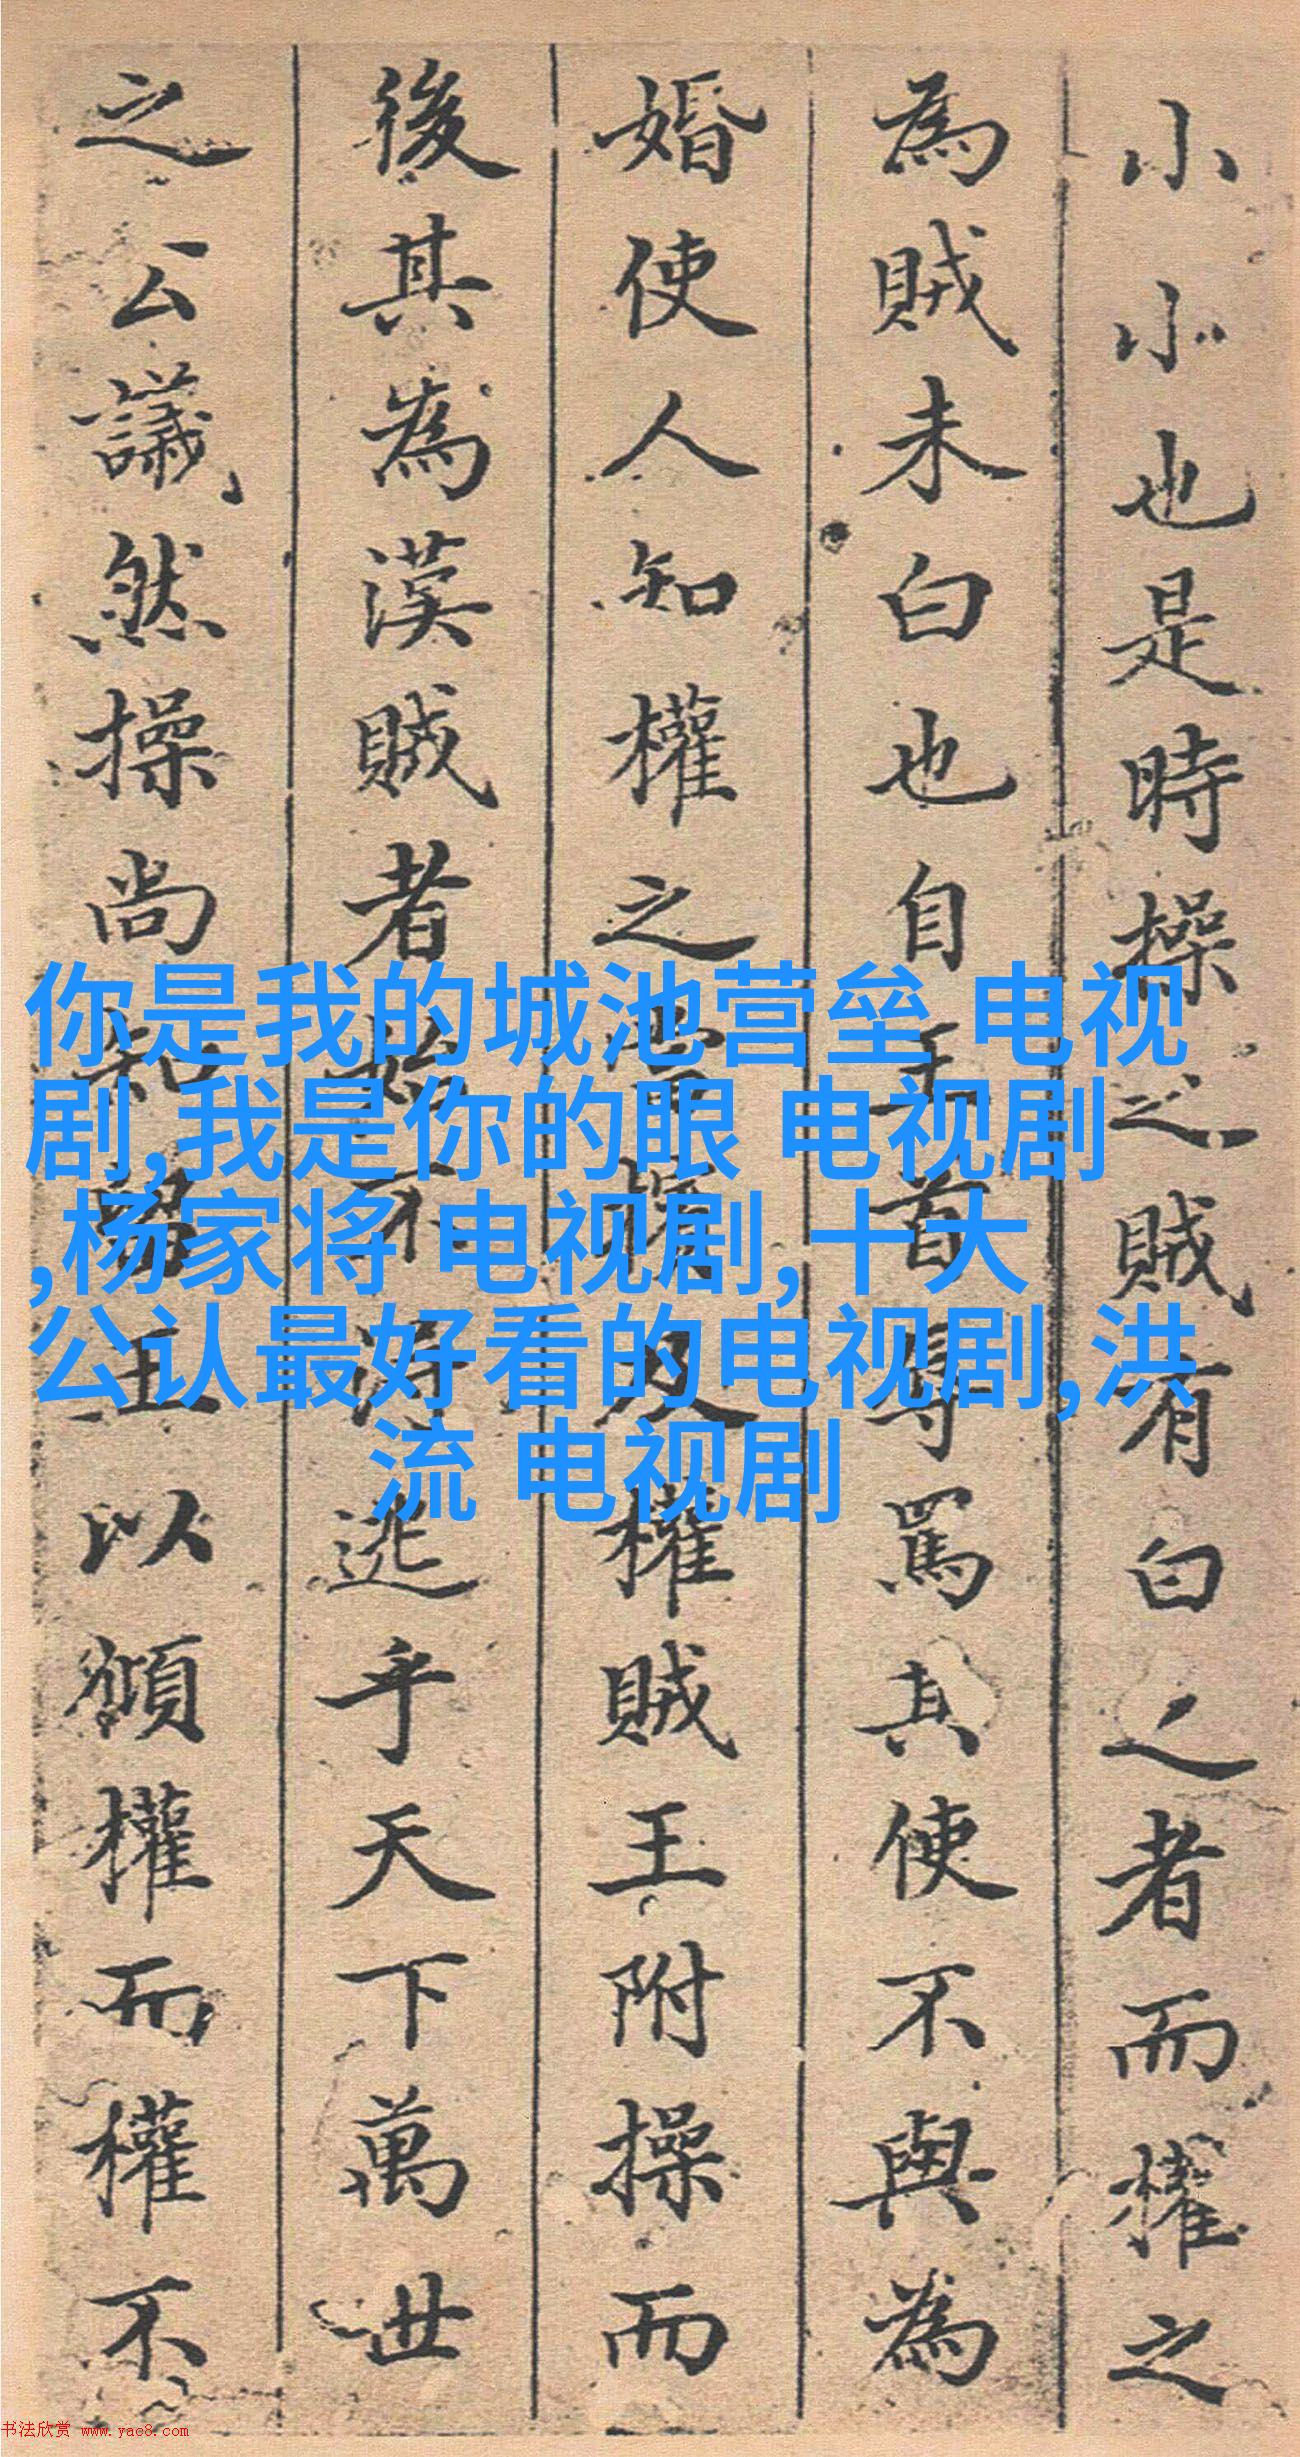 小小也是時操之賊有白之者而權之
為賊未白也自王首辱罵其使不與為
婚使人知權之權賊王附操而
後其為漢賊者始不得逃乎天下萬世
之公議然操尚知留王以權而權不
你是我的城池营垒 电视
剧,我是你的眼 电视剧
,杨家将 电视剧,十大
公认最好看的电视剧,洪
流 电视剧
书法欣赏 www.yac8.com